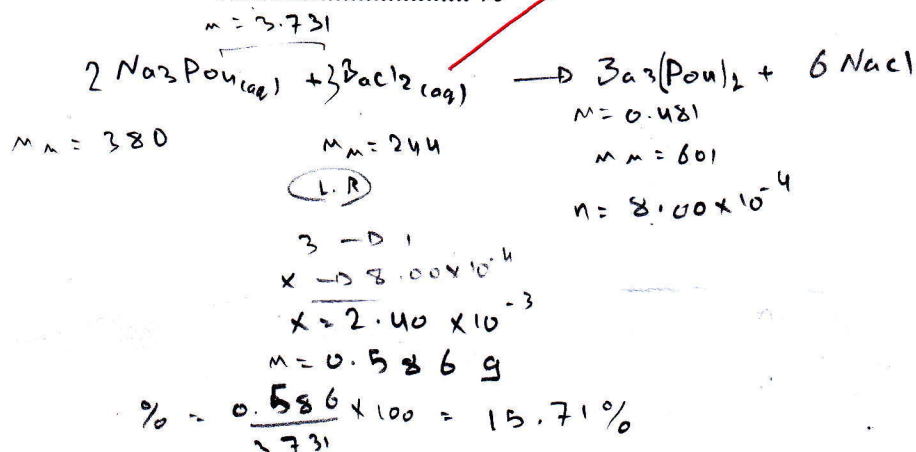 m = 3.731
2 Na3Po4(aq) + 3Bacl2(aq) → Ba3(Po4)2 + 6 Nacl
m = 0.481
Mm = 380 Mm = 244 Mm = 601
L.R
n = 8.00 x 10-4
3 → 1
x → 8.00 x 10-4
x = 2.40 x 10-3
m = 0.586 g
% = 0.586 / 3.731 x 100 = 15.71%